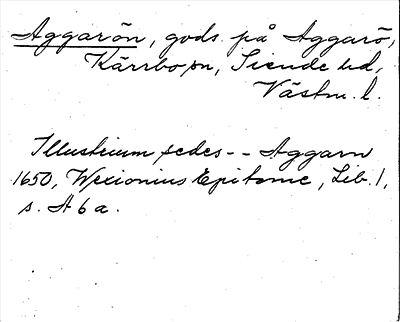 Aggarön, gods på Aggarö,
Kärrbo sn, Siende hd,
Västm. l.
Illustrium sedes - - Aggarn
1650, Wexionius Epitome, Lib. 1,
s. A 6 a.